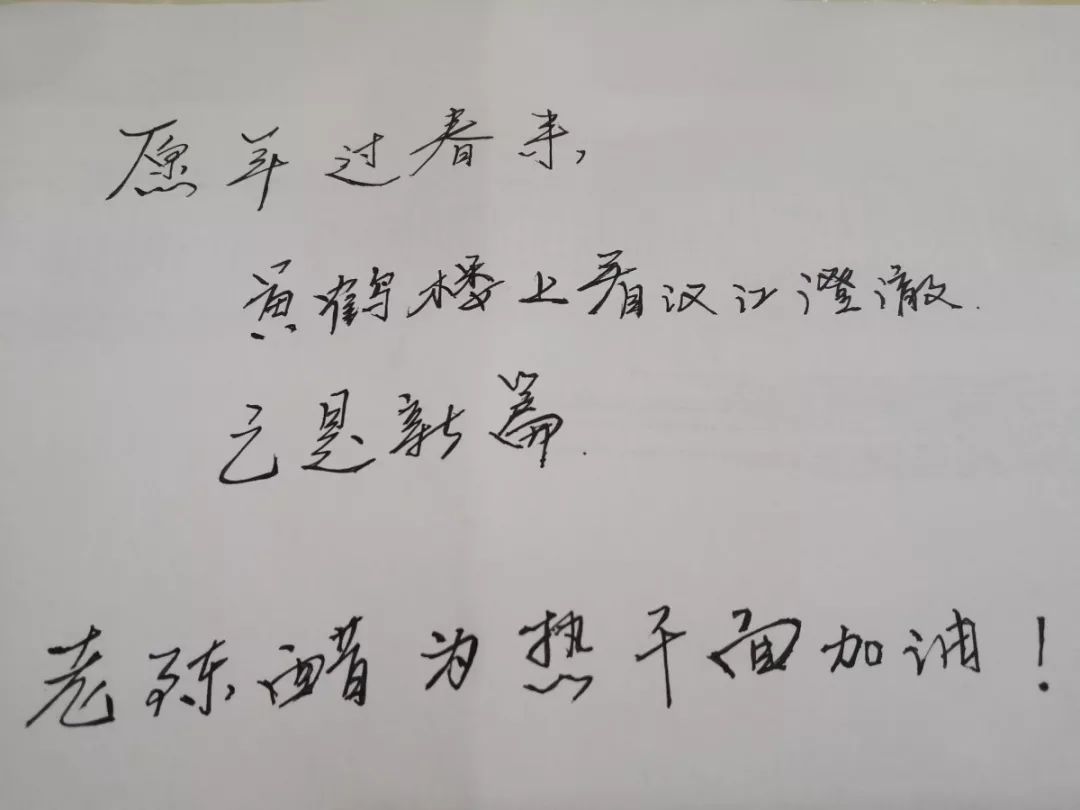 愿年过春来,
黄鹤楼上看汉江澄澈.
已是新篇.
老陈醋为热干面加油!